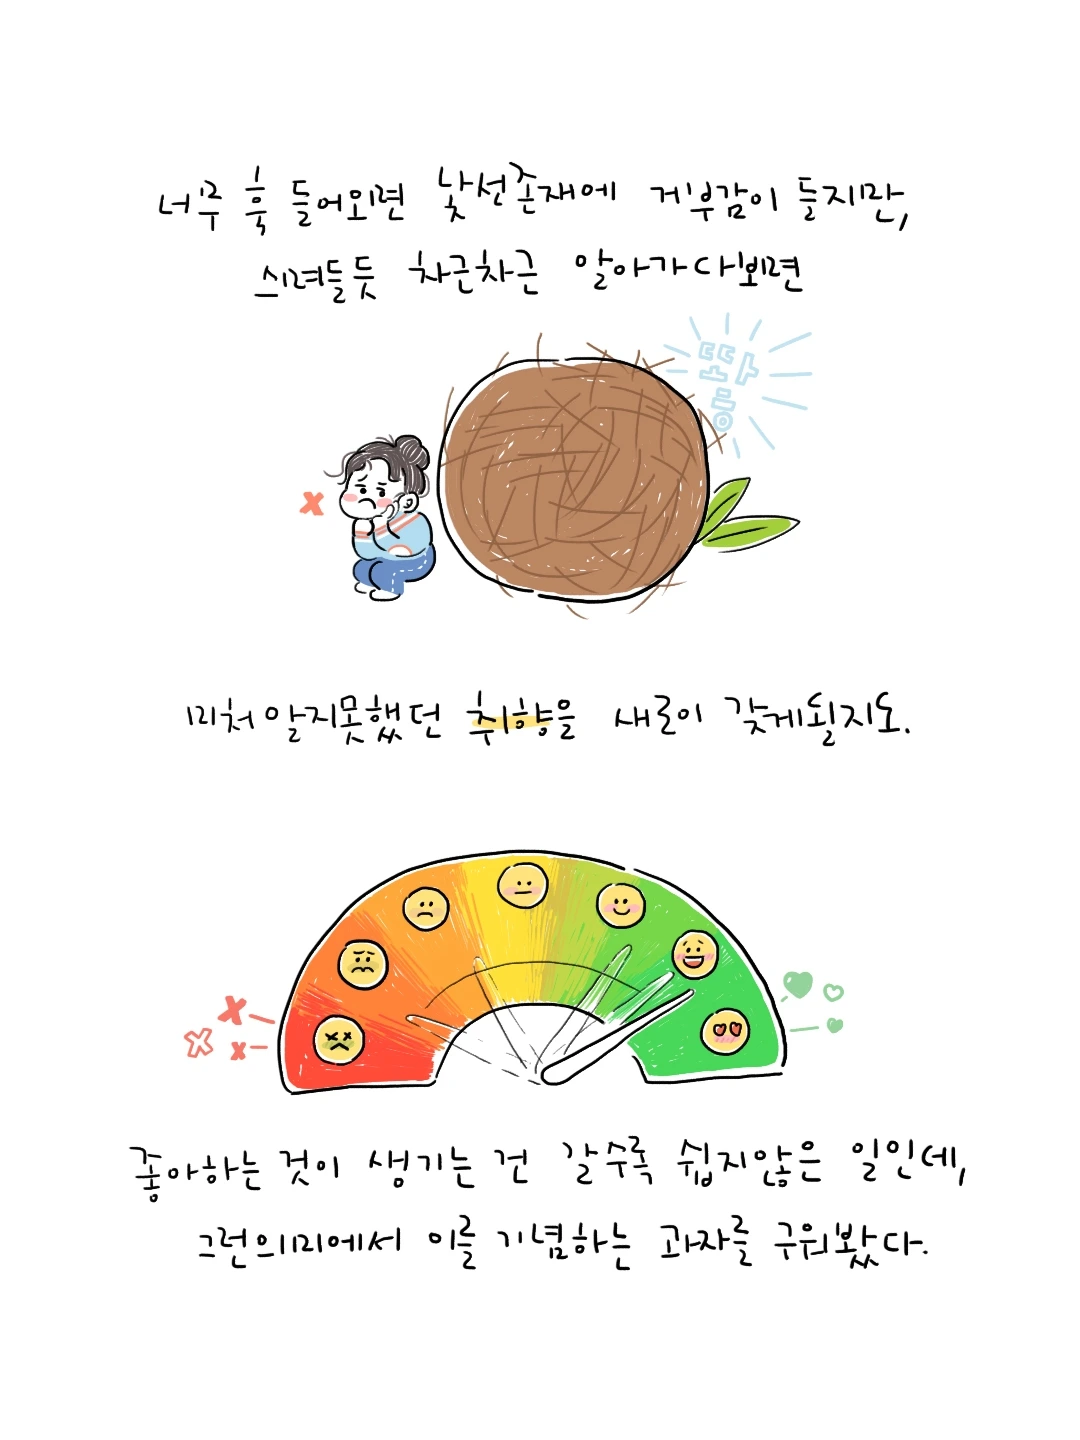 너무 훅 들어오면 낯선존재에 거부감이 들지만,
스며들듯 차근차근 알아가다보면
따둥
미처알지못했던 취향을 새로이 갖게될지도.
좋아하는 것이 생기는 건 갈수록 쉽지않은 일인데,
그런의미에서 이를 기념하는 과자를 구워봤다.